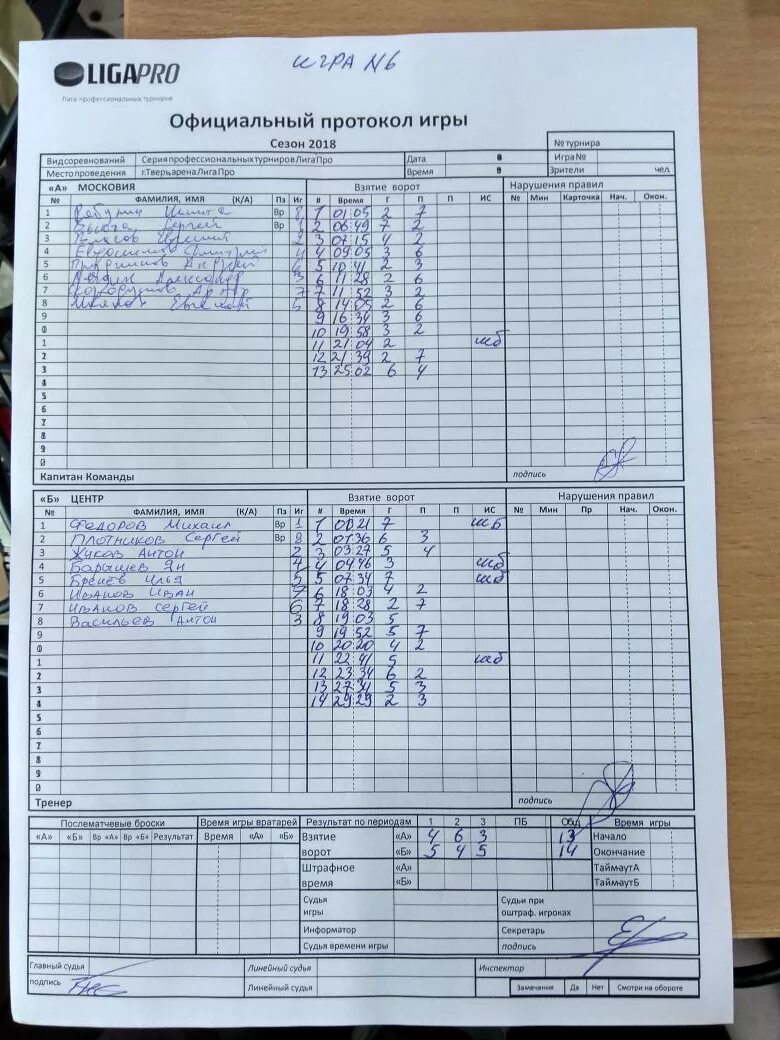 ИГРА N6
LIGAPRO
Лига профессиональных турниров
Официальный протокол игры
Сезон 2018
№ турнира
Вид соревнований Серия профессиональных турниров Лига Про Дата Игра №
Место проведения г.Тверь арена Лига Про Время Зрители чел
«А» МОСКОВИЯ Взятие ворот Нарушения правил
№ ФАМИЛИЯ, ИМЯ (К/А) Пз Иг # Время Г П П ИС № Мин Карточка Нач. Окон.
1 Никита Вр 8 1 01 05 2 7
2 Сергей Вр 2 06 49 7 2
3 3 07 15 4 2
4 Дмитрий 4 4 09 05 3 6
5 Андрей 5 10 41 2 3
6 Александр 3 6 11 28 2 6
7 Артур 7 7 11 52 3 2
8 Евгений 5 8 14 05 2 6
9 9 16 34 3 6
0 10 19 58 3 2
1 11 21 04 2 шб
2 12 21 39 2 7
3 13 25 02 6 4
4
5
6
7
8
9
0
Капитан Команды подпись
«Б» ЦЕНТР Взятие ворот Нарушения правил
№ ФАМИЛИЯ, ИМЯ (К/А) Пз Иг # Время Г П П ИС № Мин Пр Нач. Окон.
1 Федоров Михаил Вр 1 1 00 21 7 шб
2 Плотников Сергей Вр 8 2 01 36 6 3
3 Жуков Антон 2 3 03 27 5 4
4 Барышев Ян 4 4 04 46 3 шб
5 Бренёв Илья 5 5 07 34 7 шб
6 Иванов Иван 7 6 18 03 4 2
7 Иванов Сергей 6 7 18 28 2 7
8 Васильев Антон 3 8 19 03 5
9 9 19 52 5 7
0 10 20 20 4 2
1 11 22 41 5 шб
2 12 23 34 6 2
3 13 27 31 5 3
4 14 29 29 2 3
5
6
7
8
9
0
Тренер подпись
Послематчевые броски Время игры вратарей Результат по периодам 1 2 3 ПБ Общ Время игры
«А» «Б» Вр «А» Вр «Б» Результат Время «А» «Б» Взятие «А» 4 6 3 13 Начало
ворот «Б» 5 4 5 14 Окончание
Штрафное «А» Таймаут А
время «Б» Таймаут Б
Судья игры Судьи при оштраф. игроках
Информатор Секретарь
Судья времени игры подпись
Главный судья Линейный судья Инспектор
подпись Линейный судья Замечания Да Нет Смотри на обороте